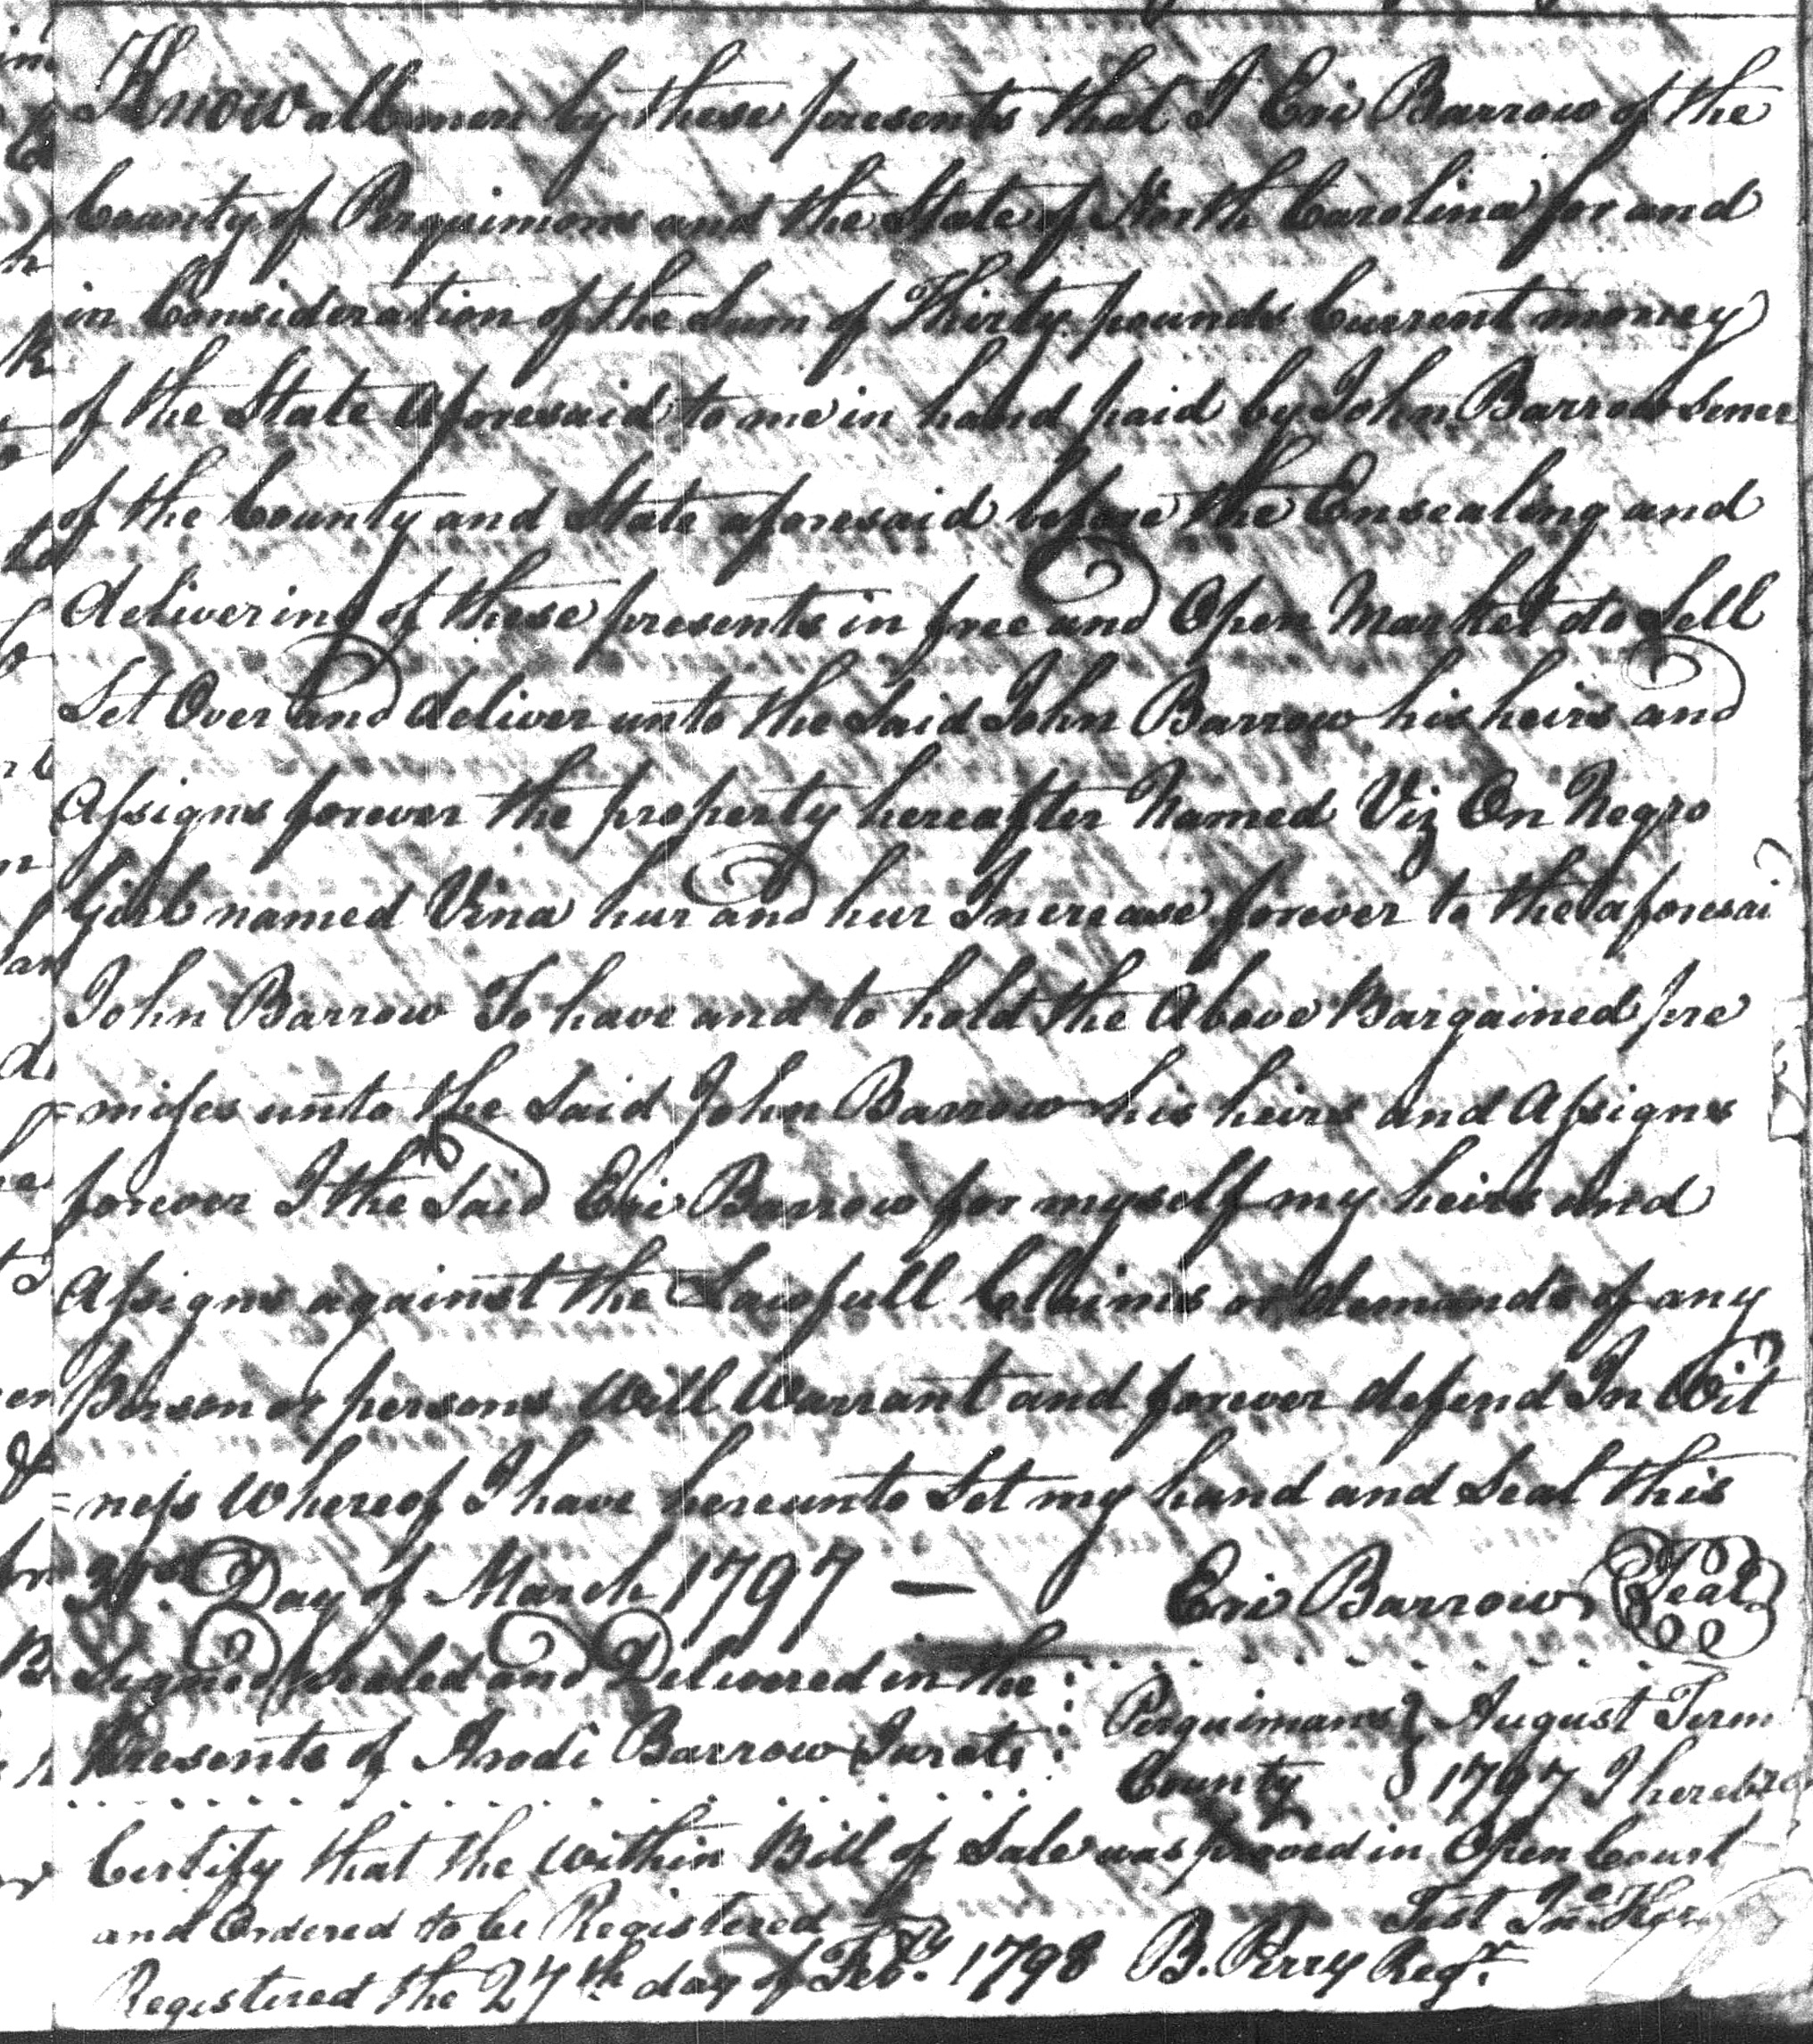 Know all men by these presents that I Eri Barrow of the
County of Perquimons and the State of North Carolina for and
in Consideration of the Sum of Thirty pounds Current money
of the State Aforesaid to me in hand paid by John Barrow Sener
of the County and State aforesaid before the Ensealing and
delivering of these presents in free and Open Market do Sell
Set Over and deliver unto the Said John Barrow his heirs and
Assigns forever the property hereafter Named Viz On Negro
Girl named Vina hur and hur Increase forever to the aforesai
John Barrow To have and to hold the Above Bargained pre
=mises unto the Said John Barrow his heirs and Assigns
forever I the Said Eri Barrow for myself my heirs and
Assigns against the Lawfull Claims or demands of any
Person or persons Will Warrant and forever defend In Wit
=ness Whereof I have hereunto Set my hand and Seal this
Day of March 1797 — Eri Barrow Seal
Signed Sealed and Delivered in the
Presents of Arodi Barrow Jurate
Perquimans } August Term
County } 1797 I
Certify that the within Bill of Sale was proved in Open Court
and Ordered to be Registered Test Jno
Registered the 27th day of Feby. 1798 B. Perry Regr.